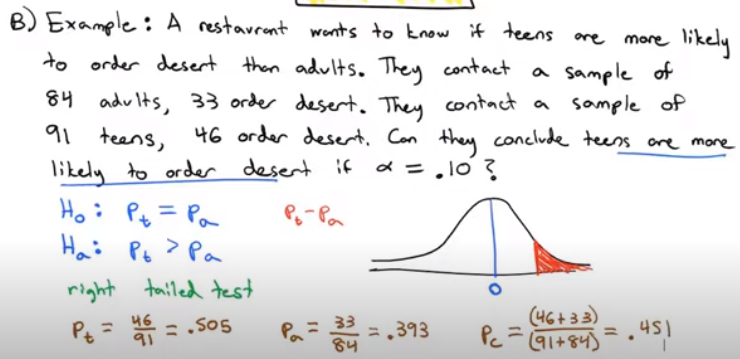 B) Example: A restaurant wants to know if teens are more likely
to order desert than adults. They contact a sample of
84 adults, 33 order desert. They contact a sample of
91 teens, 46 order desert. Can they conclude teens are more
likely to order desert if α = .10 ?
H₀: Pₜ = Pₐ Pₜ-Pₐ
Hₐ: Pₜ > Pₐ
right tailed test
0
Pₜ = 46/91 = .505 Pₐ = 33/84 = .393 P_c = (46+33)/(91+84) = .451